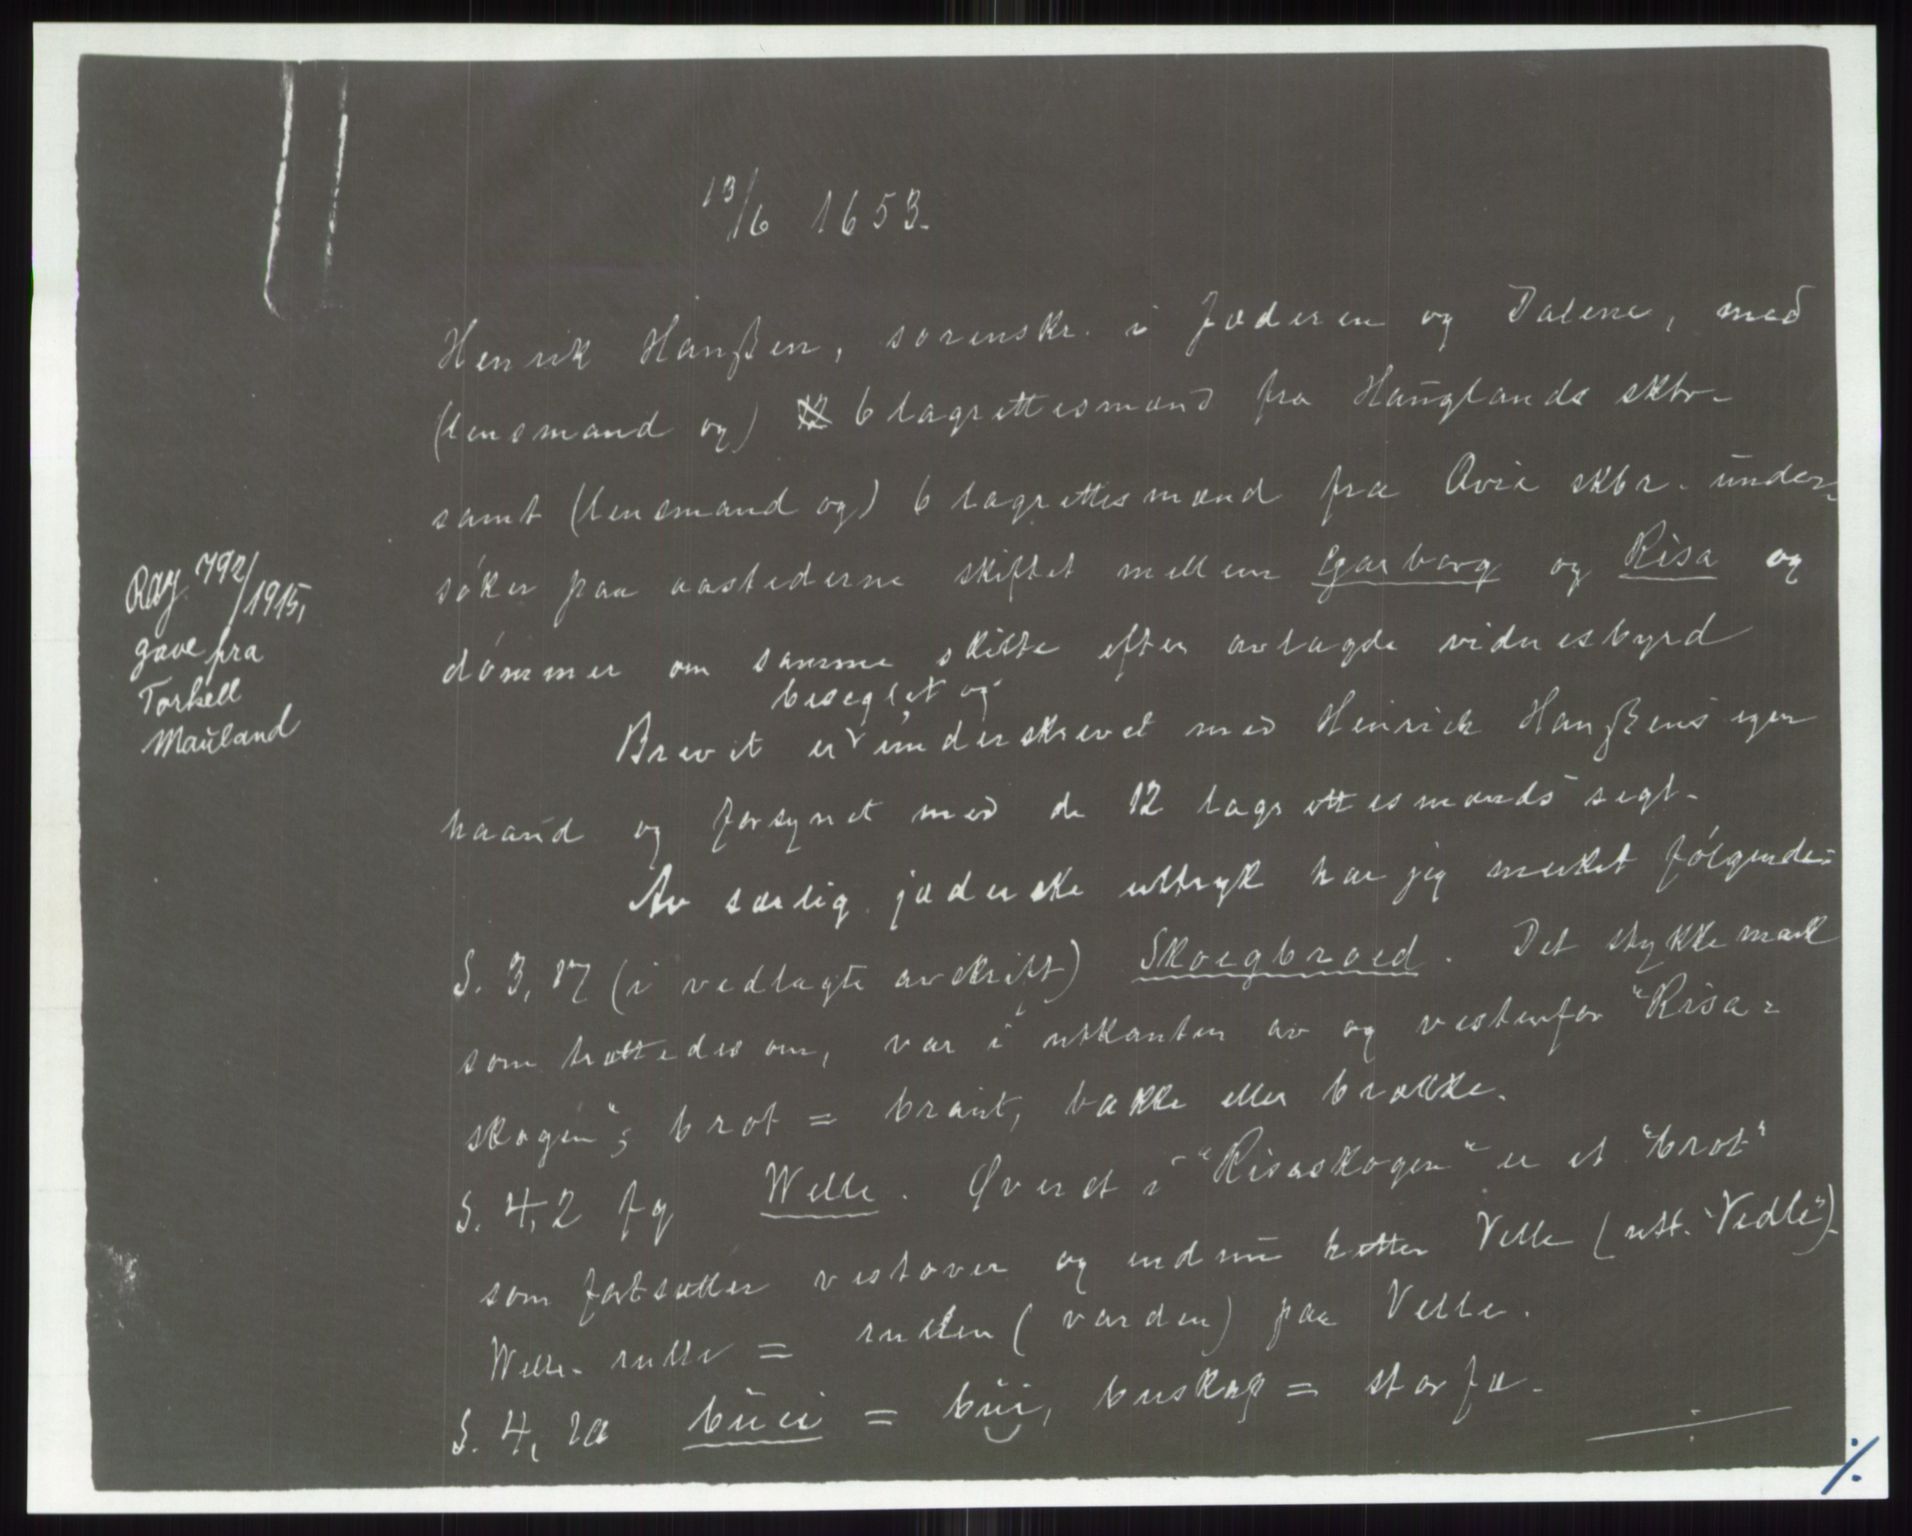 13/6 1653.
Henrik Hanßen, sorenskr. i Jæderen og Dalene, med
(lensmand og) 6 lagrettesmænd fra Hauglands skbr.
samt (lensmand og) 6 lagrettesmænd fra skbr. under-
søker paa aastederne skiftet mellem Garborg og Risa og
dømmer om samme skifte efter avlagde vidnesbyrd
beseglet og
Brevet er underskrevet med Heinrich Hanßens egen
haand og forsynet med de 12 lagrettesmænds segl.
Av særlig jæderske uttryk har jeg merket følgende:
S. 3, 17 (i vedlagte avskrift) Skoegbroed. Det stykke mark
som trættedes om, var i utkanten av og vestenfor "Risa-
skogen"; brot = braut, bakke eller brække.
S. 4, 2 fg Welle. Øverst i "Risaskogen" er et "brot"
som fortsætter vestover og endnu hetter Velle (utt. "Vedle").
Welle-rulle = rullen (varden) paa Velle.
S. 4, = bui, buskap = storfæ.
Ray. 792/1915,
gave fra
Torkell
Mauland